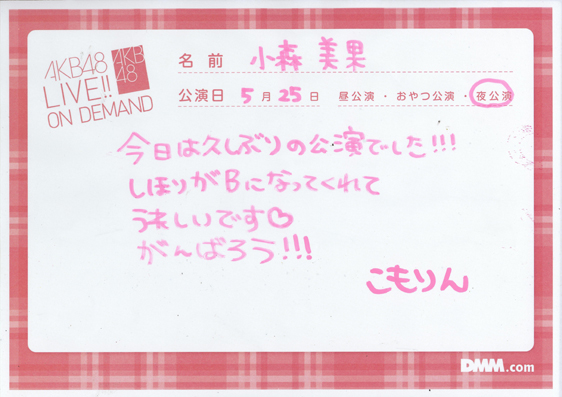 AKB48
LIVE!!
ON DEMAND
AKB
48
名前 小森 美果
公演日 5月25日 昼公演・おやつ公演・夜公演
今日は久しぶりの公演でした!!!
しほりがBになってくれて
うれしいです♡
がんばろう!!!
こもりん
DMM.com